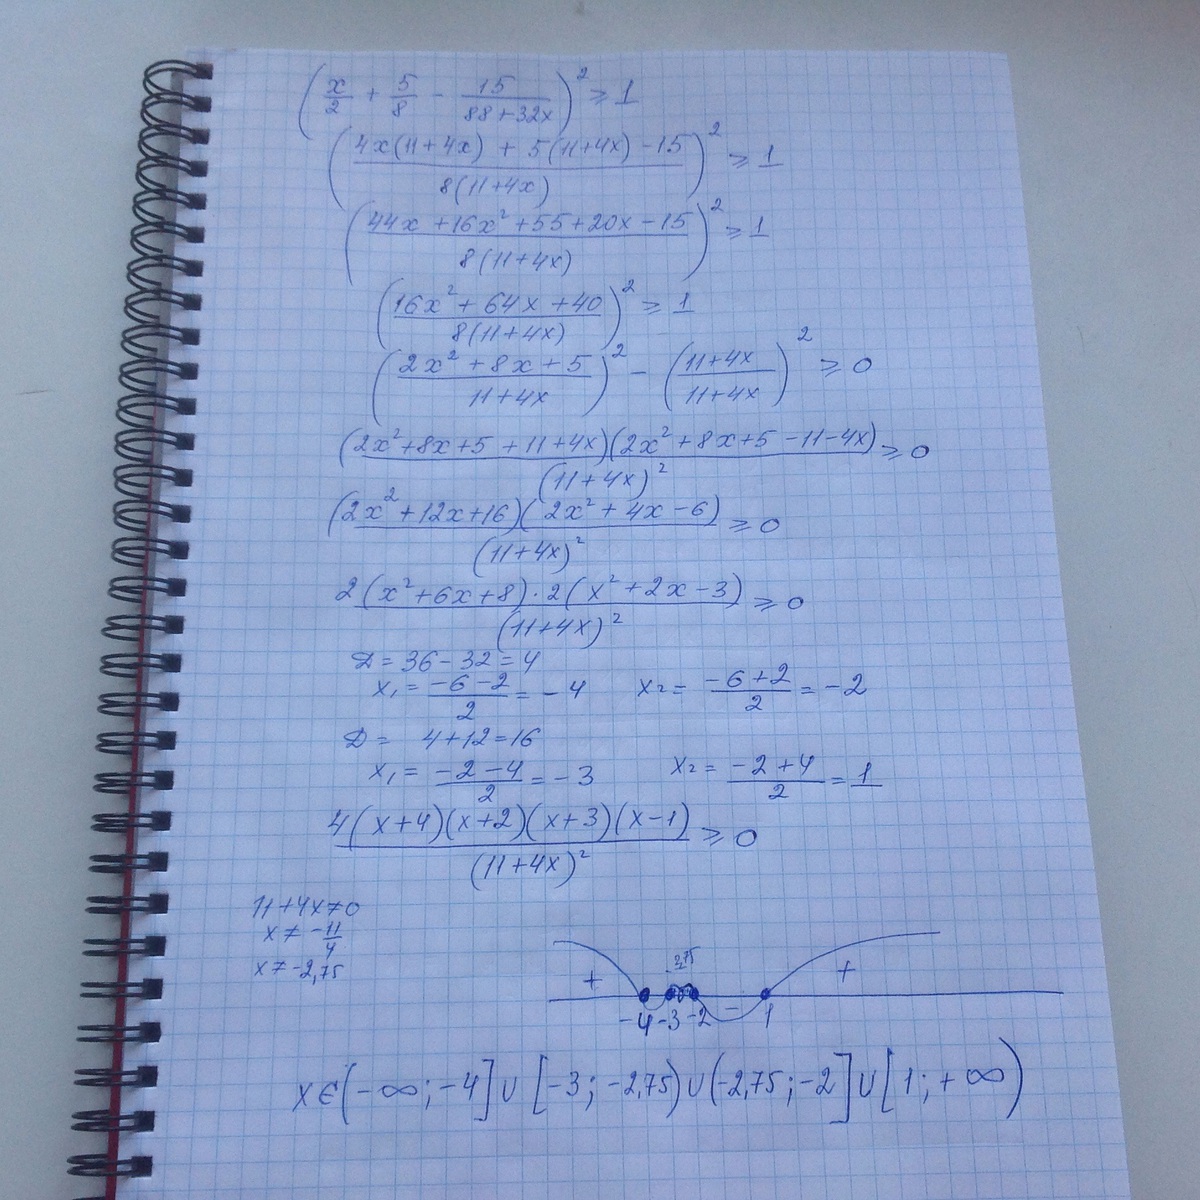 (x/2 + 5/8 - 15/(88+32x))² ⩾ 1
((4x(11+4x) + 5(11+4x) - 15)/(8(11+4x)))² ⩾ 1
((44x + 16x² + 55 + 20x - 15)/(8(11+4x)))² ⩾ 1
((16x² + 64x + 40)/(8(11+4x)))² ⩾ 1
((2x² + 8x + 5)/(11+4x))² - ((11+4x)/(11+4x))² ⩾ 0
((2x²+8x+5+11+4x)(2x²+8x+5-11-4x))/((11+4x)²) ⩾ 0
((2x²+12x+16)(2x²+4x-6))/((11+4x)²) ⩾ 0
(2(x²+6x+8)·2(x²+2x-3))/((11+4x)²) ⩾ 0
D = 36-32 = 4
x₁ = (-6-2)/2 = -4 x₂ = (-6+2)/2 = -2
D = 4+12 = 16
x₁ = (-2-4)/2 = -3 x₂ = (-2+4)/2 = 1
(4(x+4)(x+2)(x+3)(x-1))/((11+4x)²) ⩾ 0
11+4x≠0
x ≠ -11/4
x ≠ -2,75
-2,75
+ - +
-4 -3 -2 1
x∈(-∞;-4]∪[-3;-2,75)∪(-2,75;-2]∪[1;+∞)